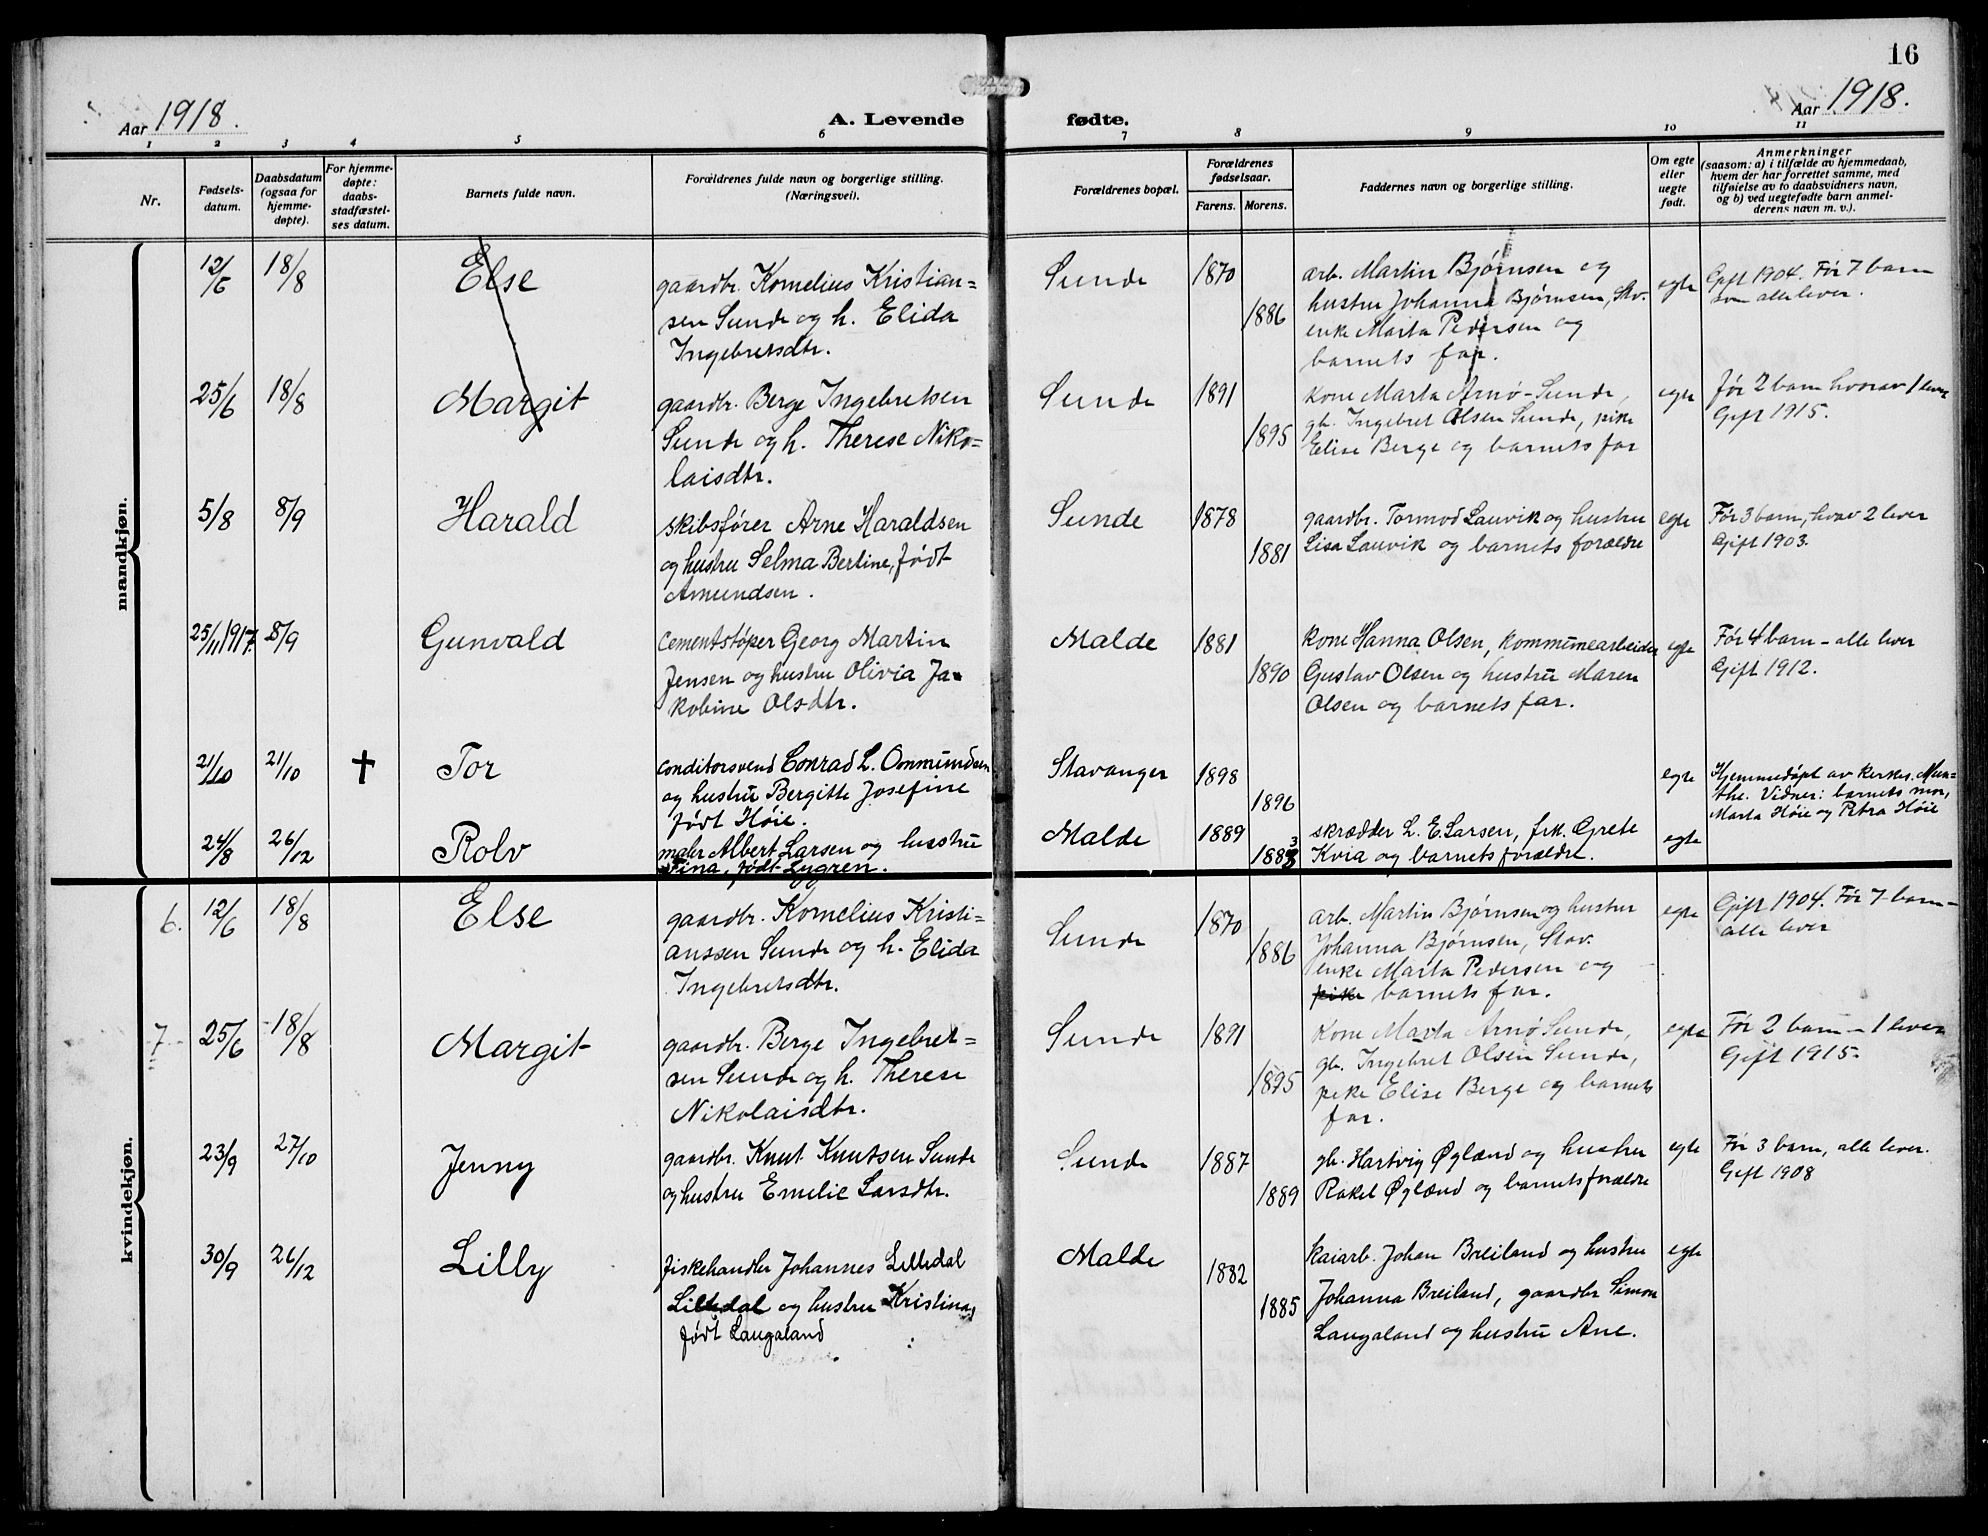 16
Aar 1918.
A. Levende fødte.
Aar 1918.
1 2 3 4 5 6 7 8 9 10 11
Nr.
Fødsels-
datum.
Daabsdatum
(ogsaa for
hjemme-
døpte).
For hjemme-
døpte:
daabs-
stadfæstel-
ses datum.
Barnets fulde navn.
Forældrenes fulde navn og borgerlige stilling.
(Næringsvei).
Forældrenes bopæl.
Forældrenes
fødselsaar.
Farens. Morens.
Faddernes navn og borgerlige stilling.
Om egte
eller
uegte
født.
Anmerkninger
(saasom: a) i tilfælde av hjemmedaab,
hvem der har forrettet samme, med
tilføielse av to daabsvidners navn,
og b) ved uegtefødte barn anmel-
derens navn m. v.).
mandkjøn.
12/6 18/8 Else
gaardbr. Kornelius Kristian=
sen Sunde og h. Elida
Ingebretsdtr.
Sunde 1870
1886
arb. Martin Bjørnsen og
hustru Johanna Bjørnsen, Stv.
enke Marta Pedersen og
barnets far.
egte
Gift 1904. Før 7 barn
som alle lever.
25/6 18/8 Margit
gaardbr. Berge Ingebretsen
Sunde og h. Therese Niko=
laisdtr.
Sunde 1891
1895
Kone Marta Arnø-Sunde,
gb. Ingebret Olsen Sunde, pike
Elise Berge og barnets far
egte
Før 2 barn hvorav 1 lever
Gift 1915.
5/8 8/9 Harald
skibsfører Arne Haraldsen
og hustru Selma Bertine, født
Amundsen.
Sunde 1878
1881
gaardbr. Tormod Lauvik og hustru
Lisa Lauvik og barnets forældre
egte
Før 3 barn, hvav 2 lever
Gift 1903.
25/11 1917. 8/9 Gunvald
cementstøper Georg Martin
Jensen og hustru Olivia Ja=
kobine Olsdtr.
Malde 1881
1890
kone Hanna Olsen, kommunearbeider
Gustav Olsen og hustru Maren
Olsen og barnets far.
egte
Før 4 barn - alle lever
Gift 1912.
21/10 21/10 † Tor
conditorsvend Conrad L. Ommundsen
og hustru Bergitte Josefine
født Høie.
Stavanger 1898
1896
egte
Hjemmedøpt av kerkes. Mun-
the. Vidner: barnets mor,
Marta Høie og Petra Høie
24/8 26/12 Rolv
maler Albert Larsen og hustru
Tina, født Lygren.
Malde 1889
1883
skrædder L. E. Larsen, frk. Grete
Kvia og barnets forældre.
egte
kvindekjøn.
6. 12/6 18/8 Else
gaardbr. Kornelius Kristi=
anssen Sunde og h. Elida
Ingebretsdtr.
Sunde 1870
1886
arb. Martin Bjørnsen og hustru
Johanna Bjørnsen, Stav.
enke Marta Pedersen og
pike barnets far.
egte
Gift 1904. Før 7 barn -
alle lever
7 25/6 18/8 Margit
gaardbr. Berge Ingebret=
sen Sunde og h. Therese
Nikolaisdtr.
Sunde 1891
1895
Kone Marta Arnø Sunde,
gb. Ingebret Olsen Sunde,
pike Elise Berge og barnets
far.
egte
Før 2 barn - 1 lever
Gift 1915.
23/9 27/10 Jenny
gaardbr. Knut Knutsen Sunde
og hustru Emelie Larsdtr.
Sunde 1887
1889
gb. Hartvig Øglænd og hustru
Rakel Øglænd og barnets forældre
egte
Før 3 barn, alle lever.
Gift 1908
30/9 26/12 Lilly
fiskehandler Johannes Lilledal
Lilledal og hustru Kristina,
født Laugaland
Malde 1882
1885
kaiarb. Johan Breiland og hustru
Johanna Breiland, gaardbr Simon
Laugaland og hustru Ane.
egte